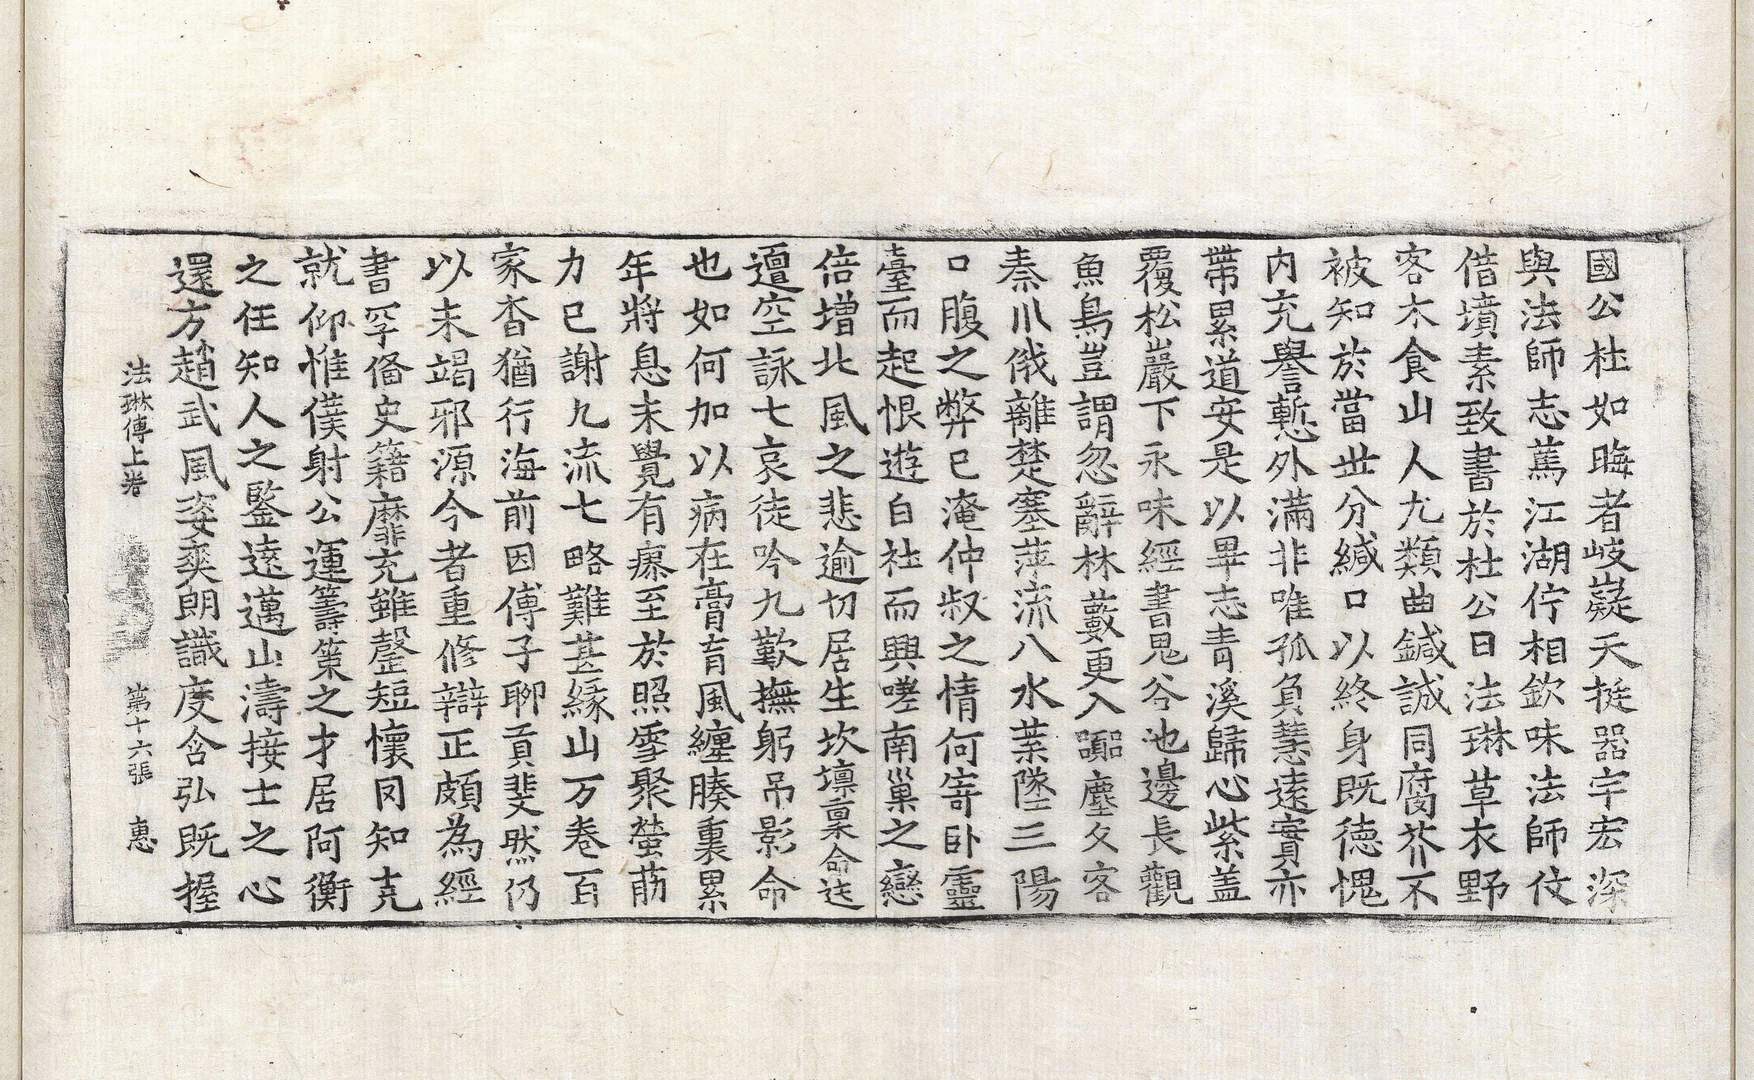 國公杜如晦者岐嶷天挺器宇宏深
與法師志蔿江湖佇相欽味法師伎
借墳素致書於杜公曰法琳草衣野
客木食山人尤類曲鍼誠同腐芥不
被知於當世分緘口以終身既德愧
內充譽慙外滿非唯孤負慧遠實亦
帶累道安是以畢志靑溪歸心紫盖
覆松巖下永味經書鬼谷池邊長觀
魚鳥豈謂忽辭林藪更入囂塵久客
秦川俄離楚塞萍流八水葉墜三陽
口腹之弊已淹仲叔之情何寄臥靈
臺而起恨遊白社而興嗟南巢之戀
倍增北風之悲逾切居生坎壈稟命迍
邅空詠七哀徒吟九歎撫躬吊影命
也如何加以病在膏肓風纏腠裏累
年將息未覺有瘳至於照雪聚螢莇
力已謝九流七略難甚緣山万卷百
家杳猶行海前因傅子聊貢斐然仍
以未竭邪源今者重修辯正頗為經
書罕備史籍靡充雖罄短懷罔知克
就仰惟僕射公運籌策之才居阿衡
之任知人之鑒遠邁山濤接士之心
還方趙武風姿爽朗識度含弘既握
法琳傳上卷 第十六張 惠